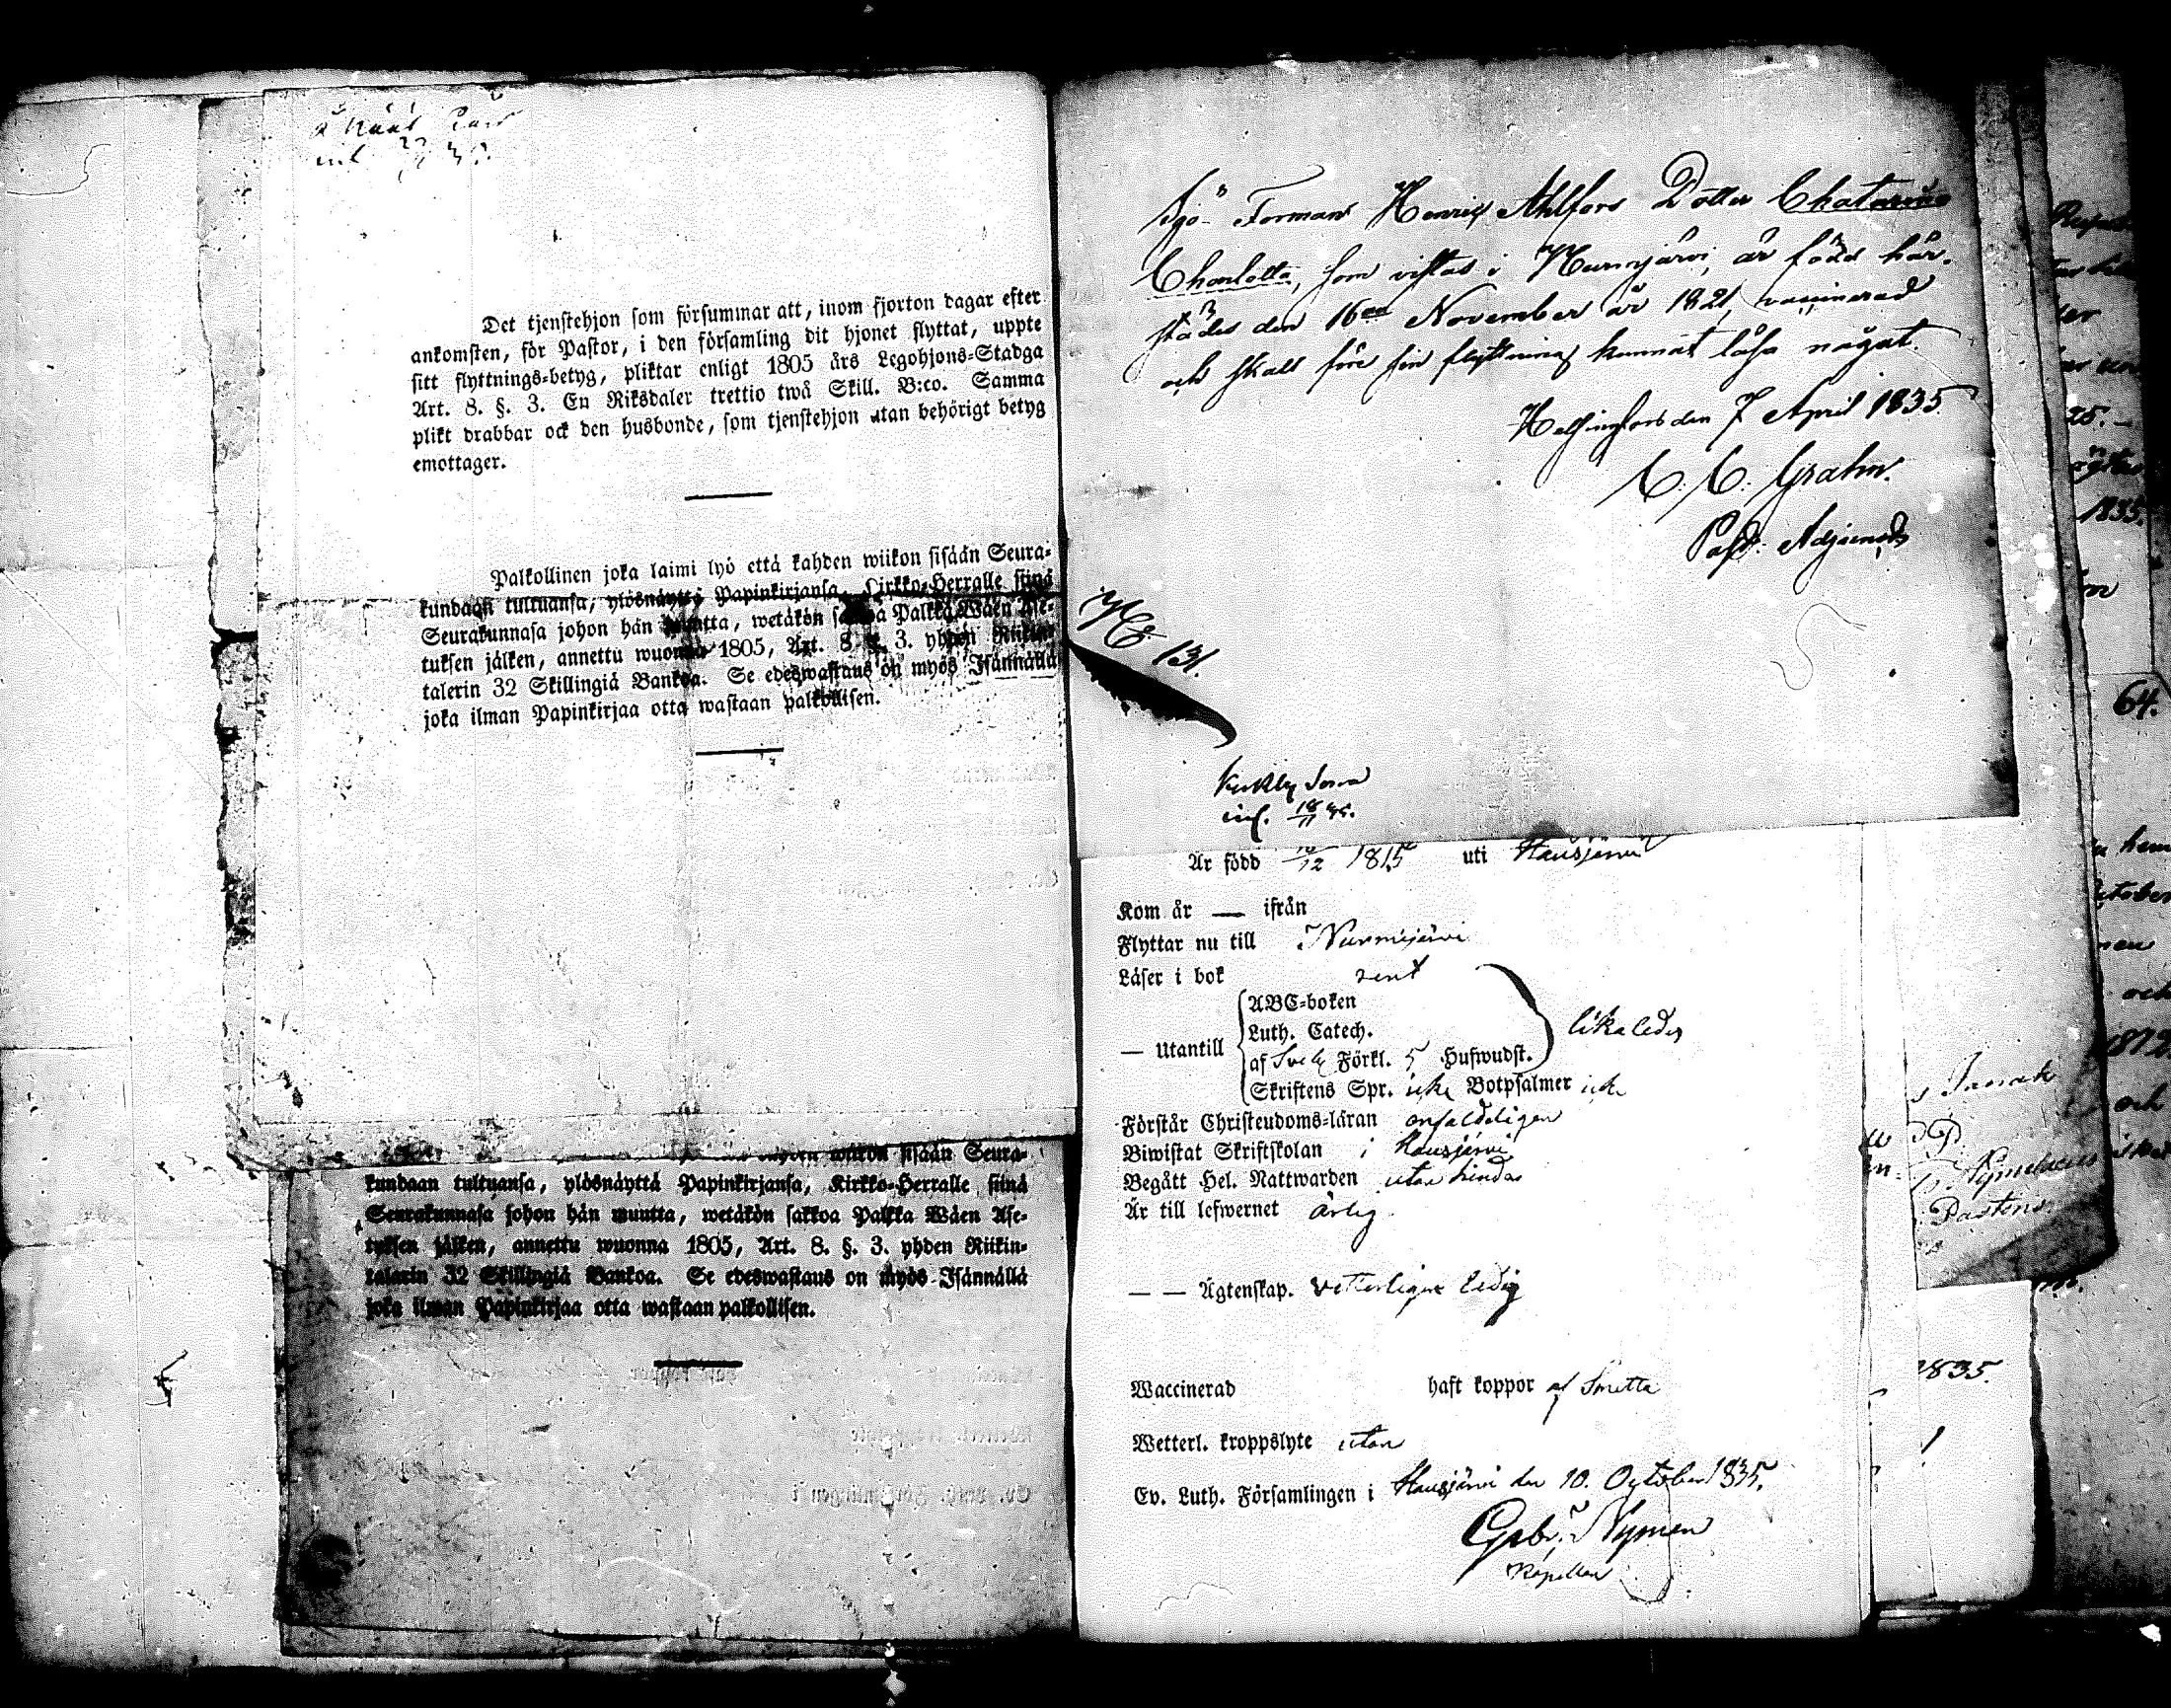 Det tjenstehjon som försummar att, inom fjorton dagar efter
ankomsten, för Pastor, i den församling dit hjonet flyttat, uppte
sitt flyttnings-betyg, pliktar enligt 1805 års Legohjons-Stadga
Art. 8. §. 3. En Riksdaler trettio twå Skill. B:co. Samma
plikt drabbar ock den husbonde, som tjenstehjon utan behörigt betyg
emottager.
Palkollinen joka laimi lyö että kahden wiikon sisään Seura-
kundaan tultuansa, ylösnäyttä Papinkirjansa, Kirkko-Herralle siinä
Seurakunnasa johon hän muutta, wetäkön sakkoa Palkka Wäen Ase-
tuksen jälken, annettu wuonna 1805, Art. 8. §. 3. yhden Riikin-
talerin 32 Skillingiä Bankoa. Se edeswastaus on myös Isännällä
joka ilman Papinkirjaa otta wastaan palkollisen.
wiikon sisään Seura-
kundaan tultuansa, ylösnäyttä Papinkirjansa, Kirkko-Herralle siinä
Seurakunnasa johon hän muutta, wetäkön sakkoa Palkka Wäen Ase-
tuksen jälken, annettu wuonna 1805, Art. 8. §. 3. yhden Riikin-
talerin 32 Skillingiä Bankoa. Se edeswastaus on myös Isännällä
joka ilman Papinkirjaa otta wastaan palkollisen.
Sjö Forman Henric Ahlfors Dotter Chatarina
Charlotta, som vistas i Nurmijärvi, är född här-
städes den 16de November år 1821, vaccinerad
och skall före sin flyttning kunnat läsa något.
Helsingfors den 7 April 1835.
C. C. Grahn.
Past: Adjunct
N:o 131.
inf. 18/11 35.
Är född 12 1815 uti Hausjärvi
Kom år — ifrån
Flyttar nu till Nurmijärvi
Läser i bok rent
— Utantill
ABC-boken
Luth. Catech.
af Sveb. Förkl. 5 Hufwudst.
likaledes
Skriftens Spr. icke Botpsalmer icke
Förstår Christendoms-läran enfaldeligen
Biwistat Skriftskolan i Hausjärvi
Begått Hel. Nattwarden utan hinder
Är till lefwernet ärlig
— — Ägtenskap. veterligen ledig
Waccinerad haft koppor af Smitta
Wetterl. kroppslyte utan
Ev. Luth. Församlingen i Hausjärvi den 10. October 1835.
Gabr. Nyman
Kapellan
1835.
64.
1835.